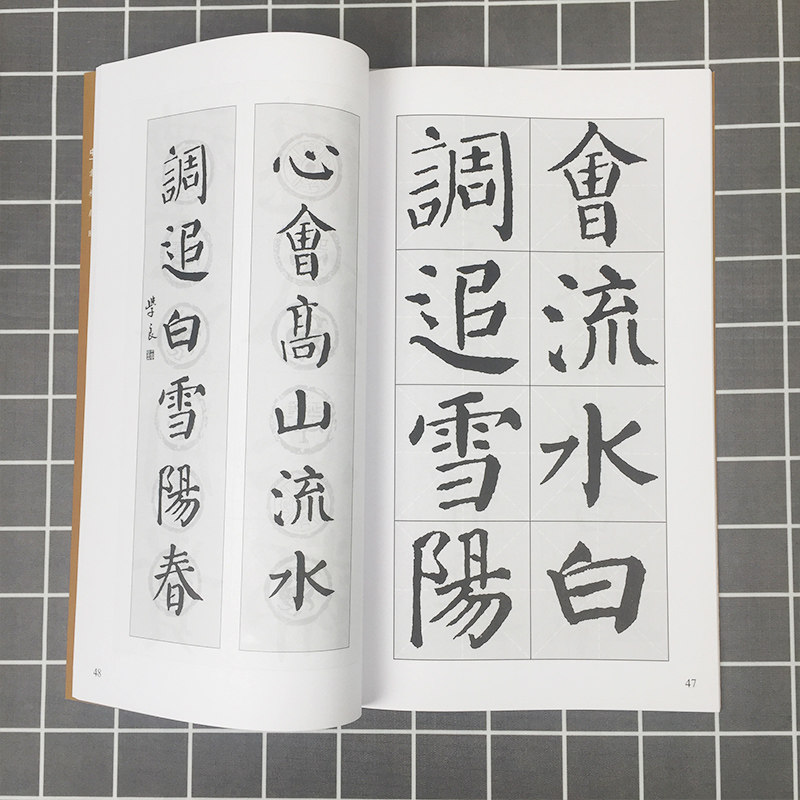 會流水白
調追雪陽
47
心會高山流水
調追白雪陽春
學良
48